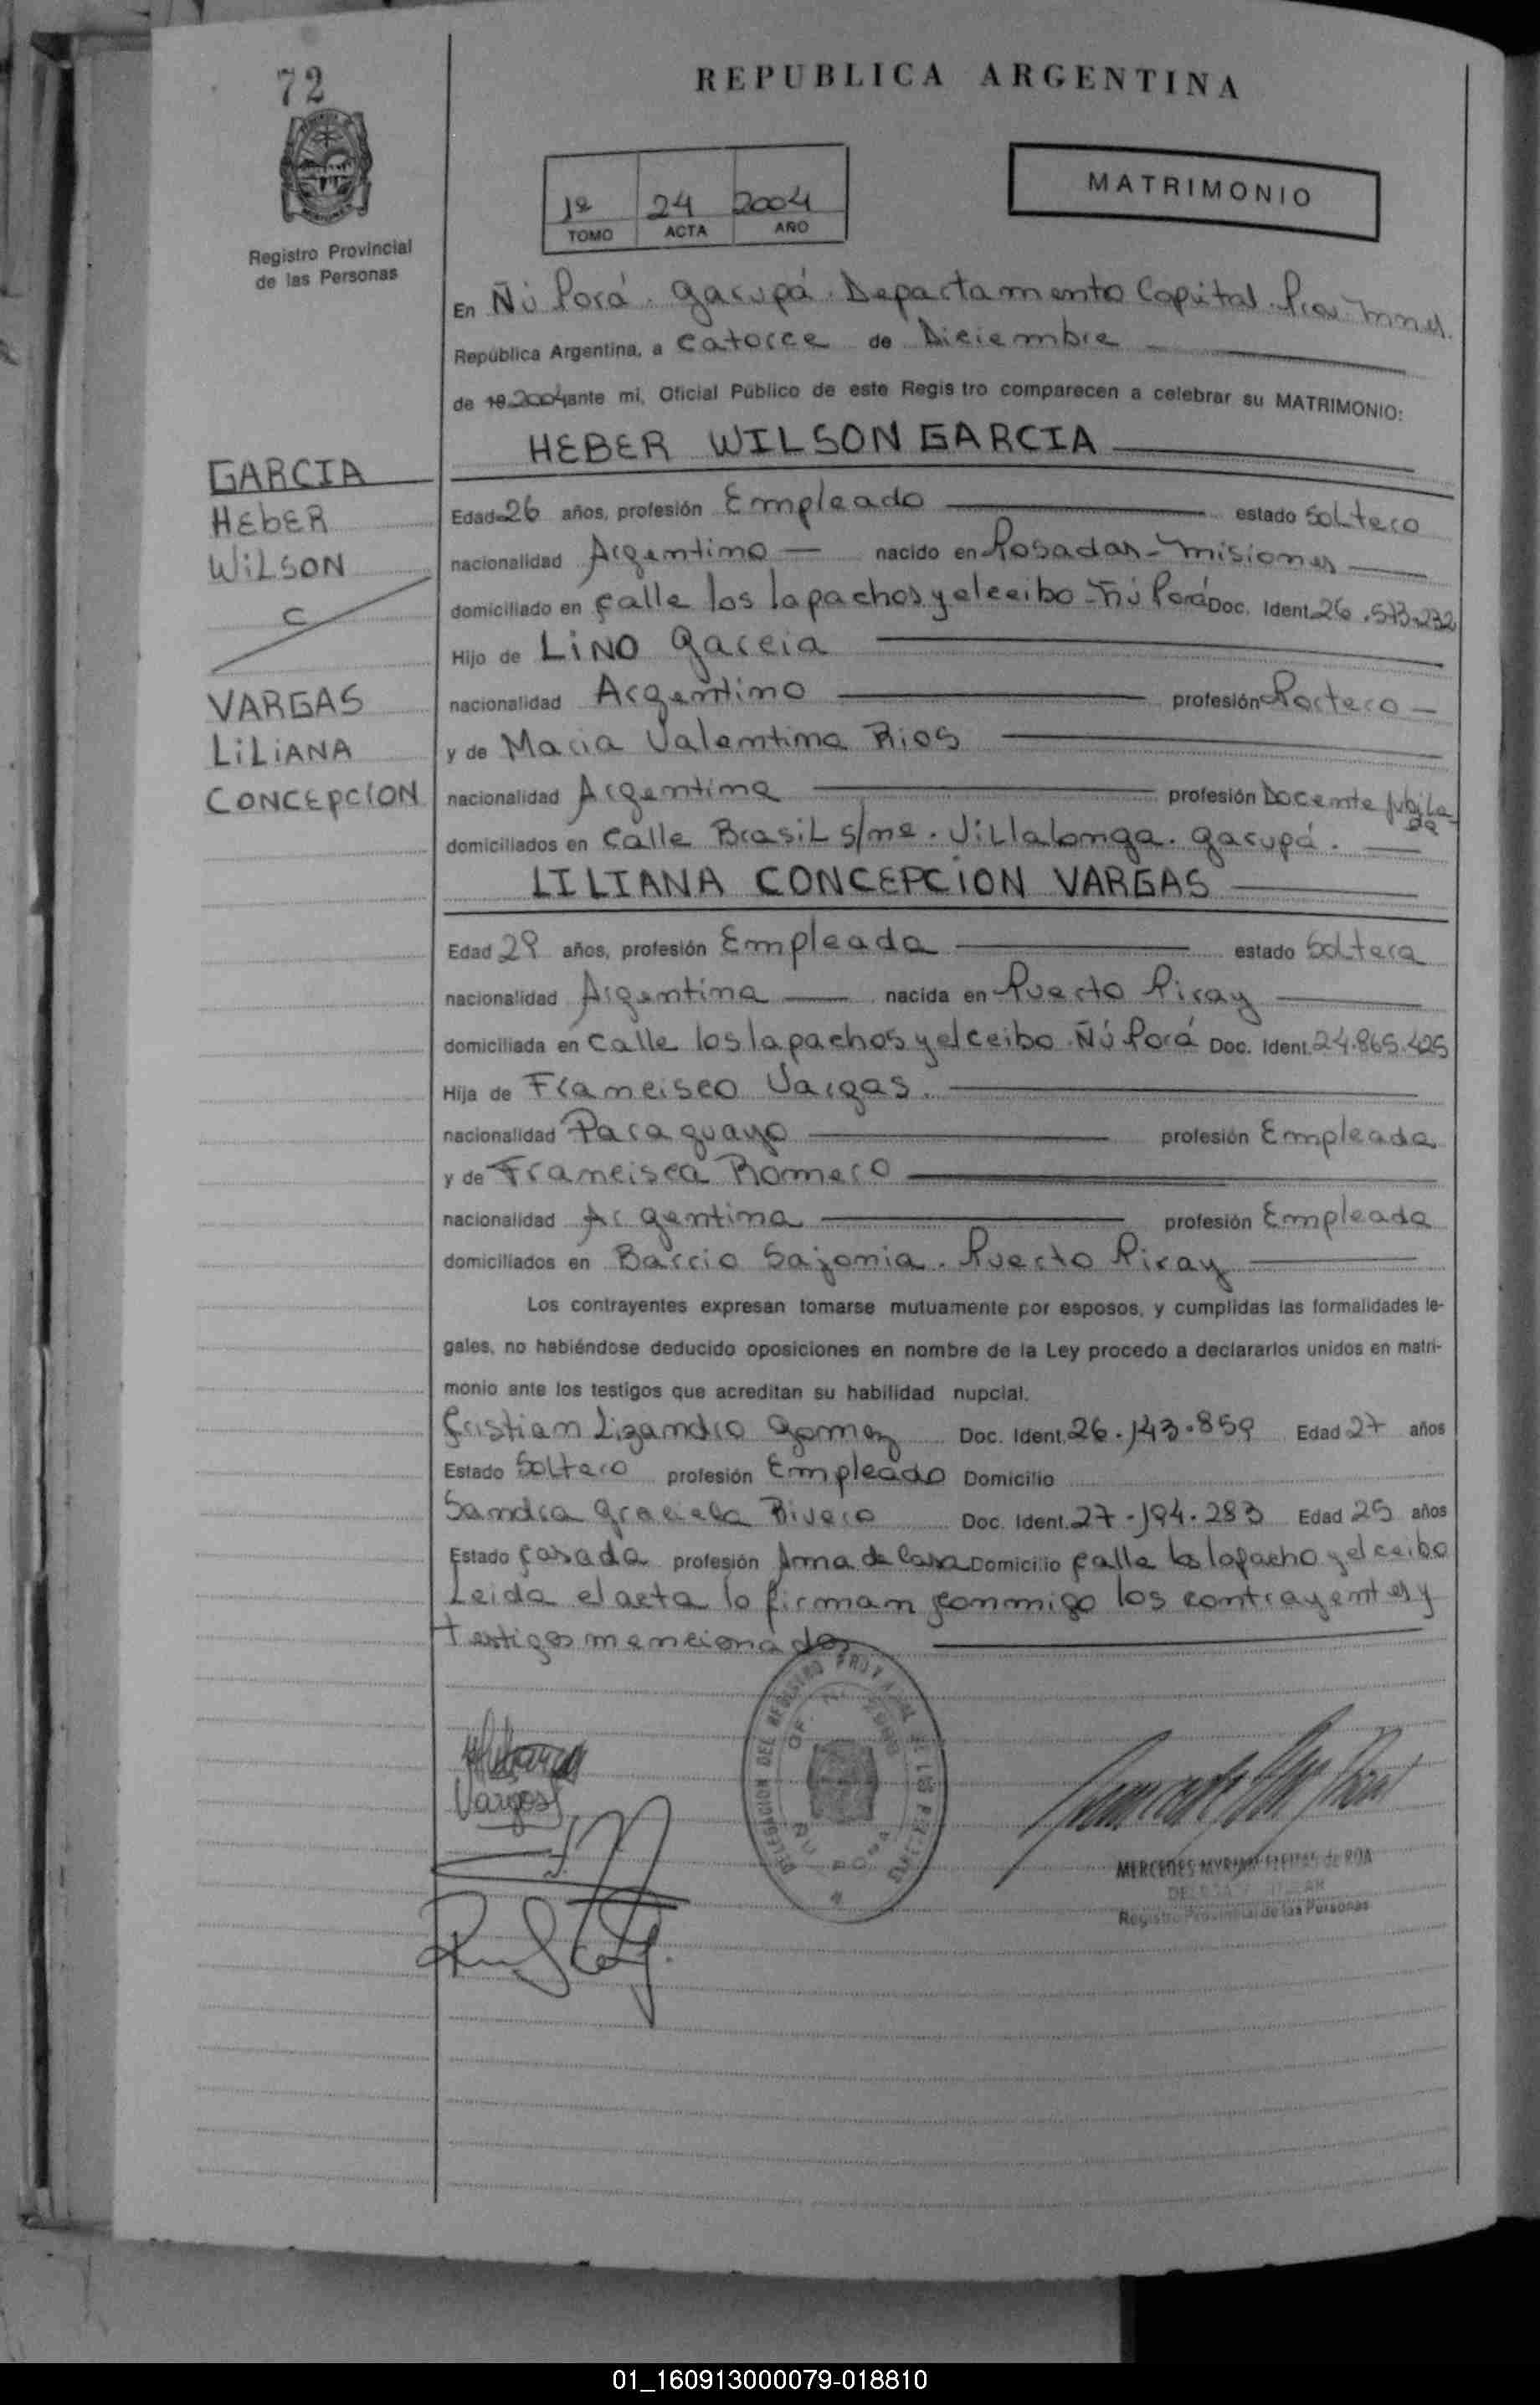 72
REPUBLICA ARGENTINA
1º 24 2004
TOMO ACTA AÑO
MATRIMONIO
Registro Provincial
de las Personas
En Ñú Porá. Garupá. Departamento Capital. Prov. Mnes.
República Argentina, a catorce de Diciembre
de 19 2004 ante mi, Oficial Público de este Registro comparecen a celebrar su MATRIMONIO:
HEBER WILSON GARCIA
GARCIA
HEBER
WILSON
C
VARGAS
LILIANA
CONCEPCION
Edad 26 años, profesión Empleado estado Soltero
nacionalidad Argentino nacido en Posadas - Misiones
domiciliado en Calle los lapachos y el ceibo - Ñú Porá Doc. Ident. 26.573.232
Hijo de Lino Garcia
nacionalidad Argentino profesión Portero
y de Maria Valentina Rios
nacionalidad Argentina profesión Docente Jubilada
domiciliados en Calle Brasil s/nº. Villalonga. Garupá.
LILIANA CONCEPCION VARGAS
Edad 29 años, profesión Empleada estado Soltera
nacionalidad Argentina nacida en Puerto Piray
domiciliada en Calle los lapachos y el ceibo. Ñú Porá Doc. Ident. 24.865.425
Hija de Francisco Vargas.
nacionalidad Paraguayo profesión Empleada
y de Francisca Romero
nacionalidad Argentina profesión Empleada
domiciliados en Barrio Sajonia. Puerto Piray
Los contrayentes expresan tomarse mutuamente por esposos, y cumplidas las formalidades le-
gales, no habiéndose deducido oposiciones en nombre de la Ley procedo a declararlos unidos en matri-
monio ante los testigos que acreditan su habilidad nupcial.
Cristian Lizandro Gomez Doc. Ident. 26.143.859 Edad 27 años
Estado Soltero profesión Empleado Domicilio
Sandra Graciela Rivero Doc. Ident. 27.194.283 Edad 25 años
Estado Casada profesión Ama de Casa Domicilio Calle los lapacho y el ceibo
Leida el acta lo firman conmigo los contrayentes y
testigos mencionados
DELEGACION DEL REGISTRO PROVINCIAL DE LAS PERSONAS
ÑU PORA
Vargas
MERCEDES MYRIAM FLEITAS de ROA
DELEGADA TITULAR
Registro Provincial de las Personas
01_160913000079-018810